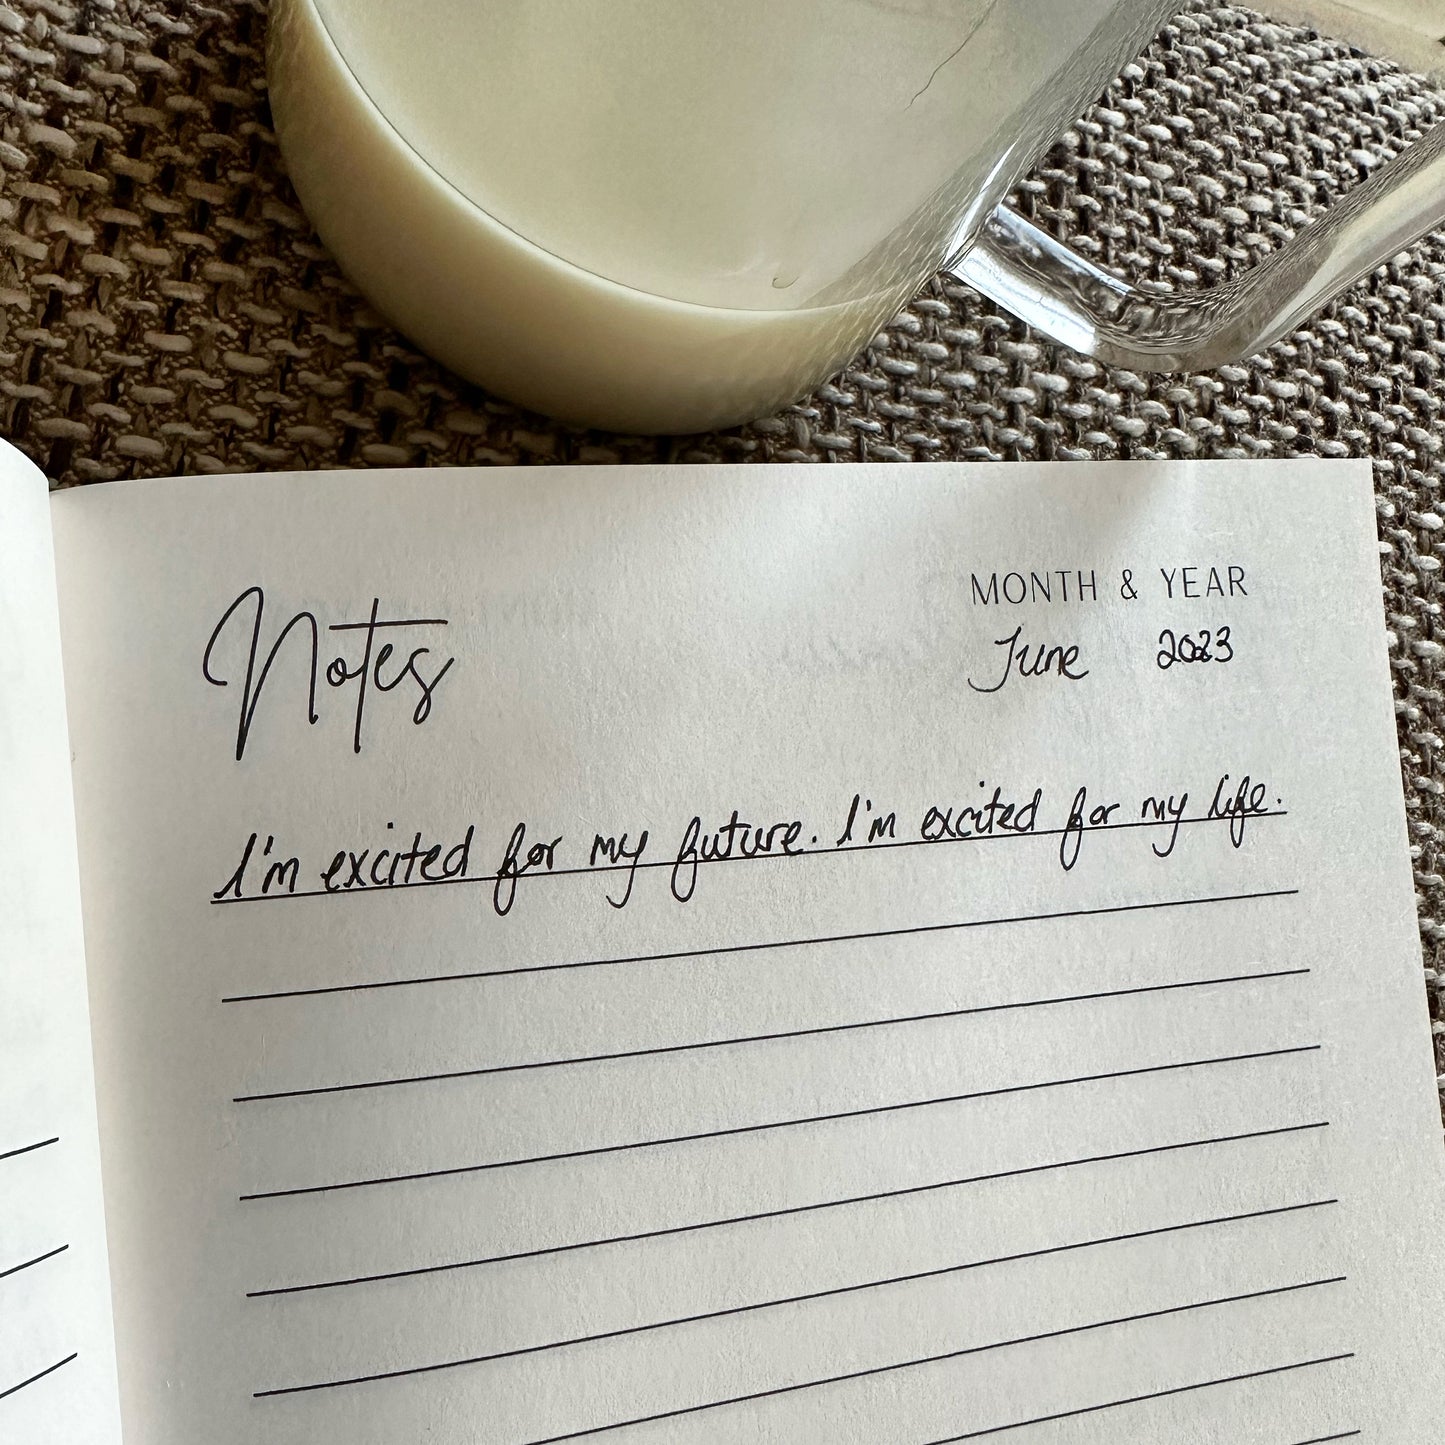 Notes
MONTH & YEAR
June 2023
I'm excited for my future. I'm excited for my life.